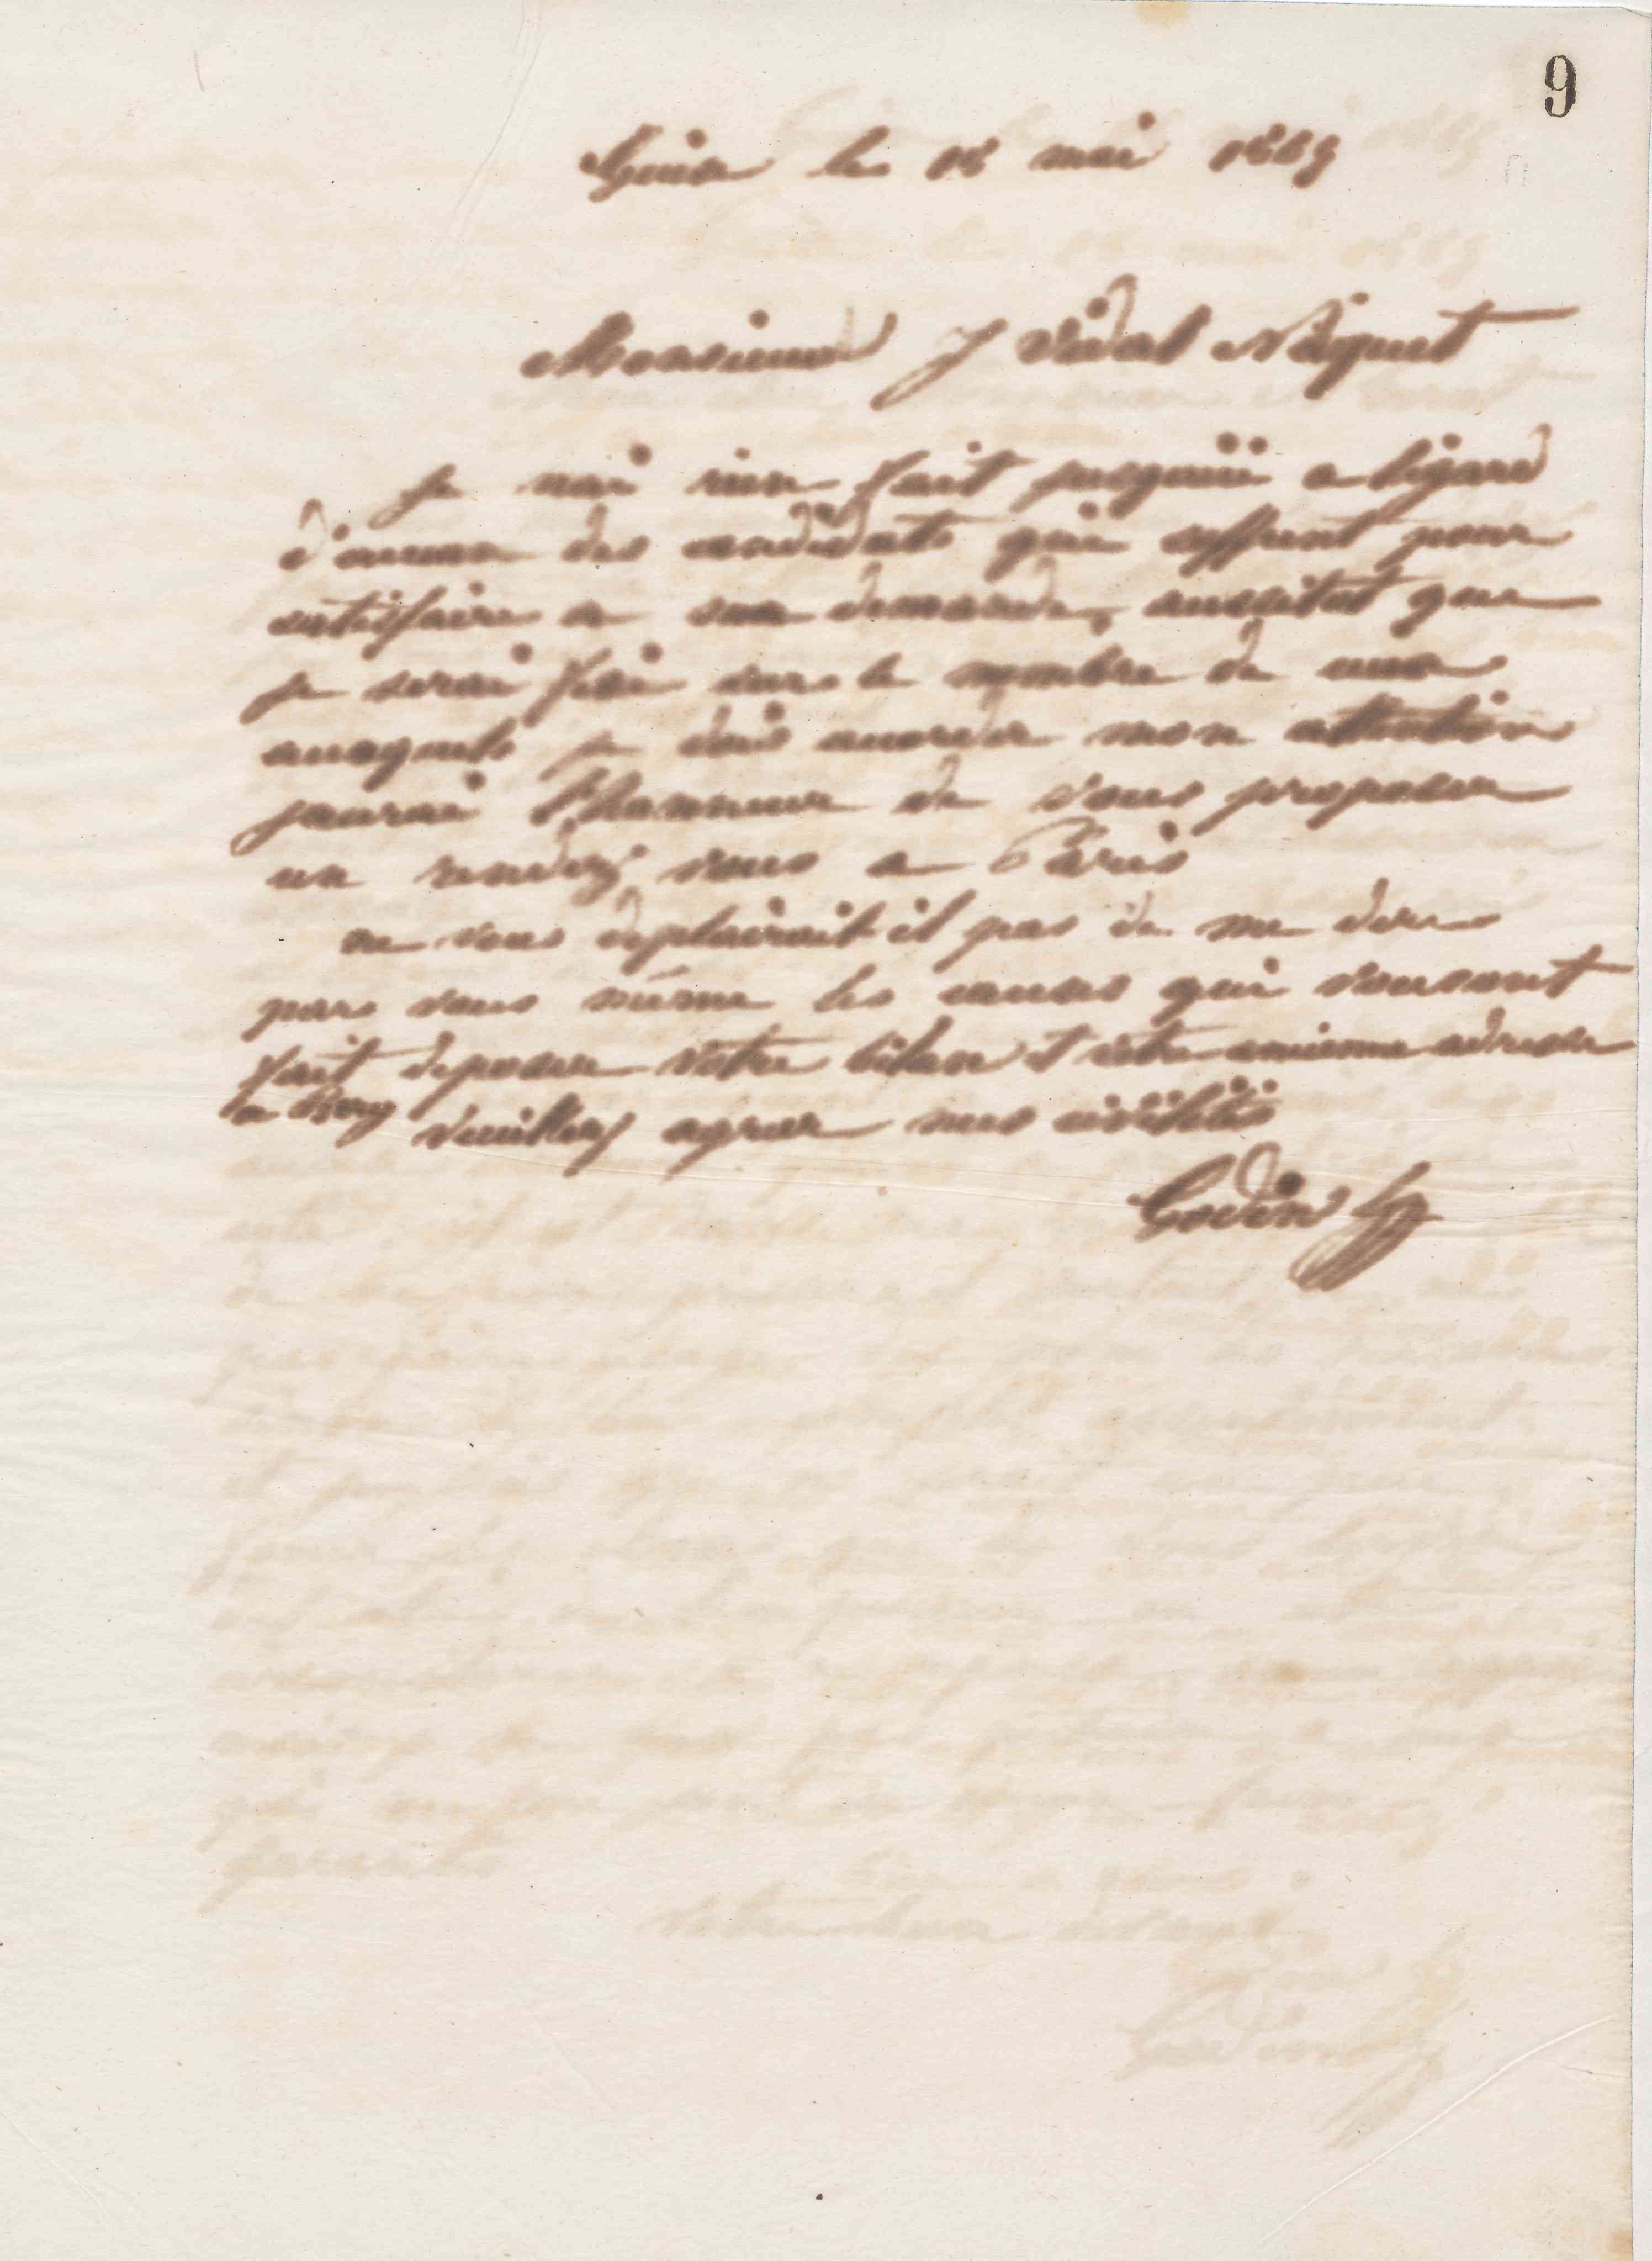 9
Guise le 18 mai 1865
Monsieur J Vidal Niquet
je nai rien fait jusquici a legard
d'aucun des candidats qui soffrent pour
satisfaire a ma demande, aussitot que
je serai fixé sur le nombre de ceux
auxquels je dois accorder mon attention
jaurai l'honneur de vous proposer
un rendez vous a Paris
ne vous deplairait il pas de me dire
par vous même les causes qui vous ont
fait deposer votre bilan et votre ancienne adresse
a Bercy
Veuillez agreer mes civilités
Godin